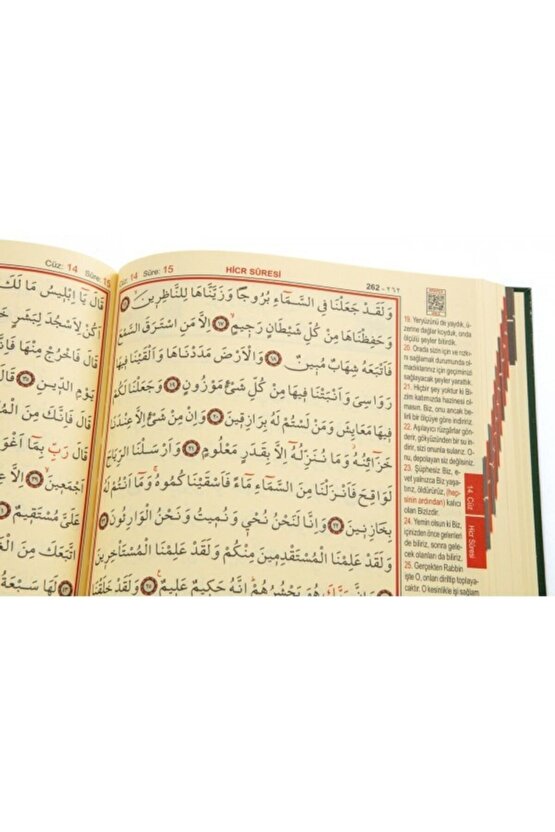 Cüz: 14 Sûre: 15
14 Sûre: 15
HİCR SÛRESİ
262 - ٢٦٢
وَلَقَدْ جَعَلْنَا فِي السَّمَٓاءِ بُرُوجًا وَزَيَّنَّاهَا لِلنَّاظِر۪ينَۙ ﴿١٦﴾
وَحَفِظْنَاهَا مِنْ كُلِّ شَيْطَانٍ رَج۪يمٍۙ ﴿١٧﴾ اِلَّا مَنِ اسْتَرَقَ السَّمْعَ
فَاَتْبَعَهُ شِهَابٌ مُب۪ينٌ ﴿١٨﴾ وَالْاَرْضَ مَدَدْنَاهَا وَاَلْقَيْنَا ف۪يهَا
رَوَاسِيَ وَاَنْبَتْنَا ف۪يهَا مِنْ كُلِّ شَيْءٍ مَوْزُونٍ ﴿١٩﴾ وَجَعَلْنَا لَكُمْ
ف۪يهَا مَعَايِشَ وَمَنْ لَسْتُمْ لَهُ بِرَازِق۪ينَ ﴿٢٠﴾ وَاِنْ مِنْ شَيْءٍ اِلَّا عِنْدَنَا
خَزَٓائِنُهُۘ وَمَا نُنَزِّلُهُٓ اِلَّا بِقَدَرٍ مَعْلُومٍ ﴿٢١﴾ وَاَرْسَلْنَا الرِّيَاحَ
لَوَاقِحَ فَاَنْزَلْنَا مِنَ السَّمَٓاءِ مَٓاءً فَاَسْقَيْنَاكُمُوهُۚ وَمَٓا اَنْتُمْ لَهُ
بِخَازِن۪ينَ ﴿٢٢﴾ وَاِنَّا لَنَحْنُ نُحْي۪ وَنُم۪يتُ وَنَحْنُ الْوَارِثُونَ ﴿٢٣﴾
وَلَقَدْ عَلِمْنَا الْمُسْتَقْدِم۪ينَ مِنْكُمْ وَلَقَدْ عَلِمْنَا الْمُسْتَأْخِر۪ينَ
﴿٢٤﴾ وَاِنَّ رَبَّكَ هُوَ يَحْشُرُهُمْۜ اِنَّهُ حَك۪يمٌ عَل۪يمٌ۟ ﴿٢٥﴾ وَلَقَدْ خَلَقْنَا
قَالَ يَٓا اِبْل۪يسُ مَا لَكَ
اَكُنْ لِاَسْجُدَ لِبَشَرٍ
قَالَ فَاخْرُجْ مِنْهَا فَاِنَّ
يَوْمِ الدّ۪ينِ ﴿٣٥﴾ قَالَ
قَالَ فَاِنَّكَ مِنَ الْمُ
قَالَ رَبِّ بِمَٓا اَغْوَ
اَجْمَع۪ينَۙ ﴿٣٩﴾
عَلَيَّ مُسْتَق۪يمٌ
اتَّبَعَكَ مِنَ الْ
لَهَا سَبْعَةُ
19. Yeryüzünü de yaydık, ü-
zerine dağlar koyduk, onda
ölçülü şeyler bitirdik.
20. Orada sizin için ve rızkı-
nı sağlamak durumunda ol-
madıklarınız için geçiminizi
sağlayacak şeyler yarattık.
21. Hiçbir şey yoktur ki Bi-
zim katımızda hazinesi ol-
masın. Biz, onu ancak be-
lirli bir ölçüye göre indiririz.
22. Aşılayıcı rüzgârlar gön-
derir, gökyüzünden bir su in-
dirir, sizi onunla sularız. O-
nu, depolayan siz değilsiniz.
23. Şüphesiz Biz, e-
vet yalnızca Biz yaşa-
tırız, öldürürüz, (hep-
sinin ardından) kalıcı
olan Bizizdir.
24. Yemin olsun ki Biz,
içinizden önce gelenleri
de biliriz, sonra gele-
cek olanları da biliriz.
25. Gerçekten Rabbin
işte O, onları diriltip toplaya-
caktır. O kesinlikle işi sağlam
14. Cüz
Hicr Sûresi